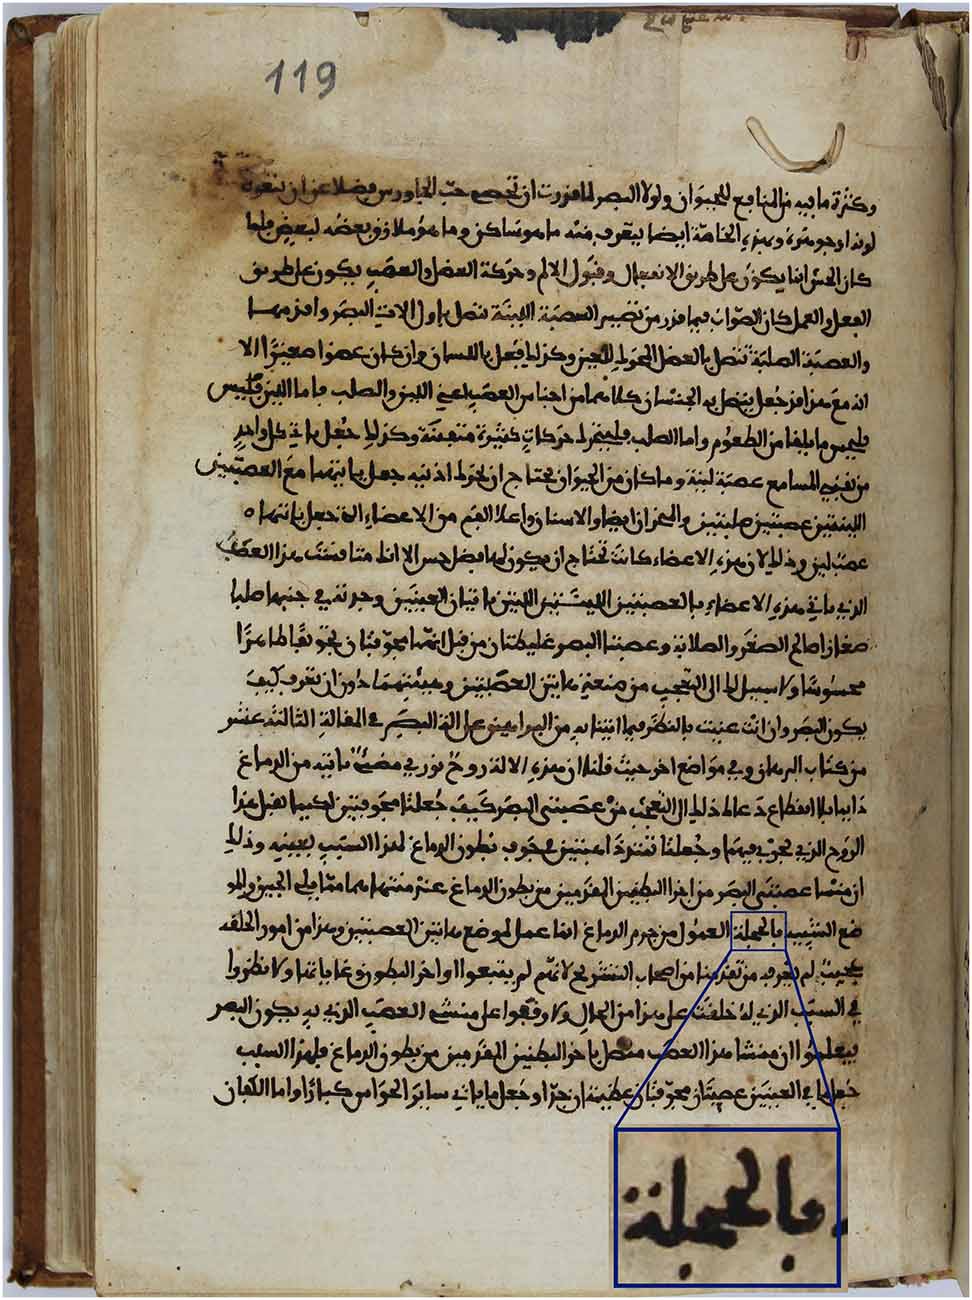 119
وكثرة ما فيه من المنافع للحيوان ولولا البصر لما قدرت ان تحصي حب الجاورس فضلا عن ان تعرف
لونه او جوهره وبهذه الحاسة ايضا يعرف منه ما هو ساكن وما هو ملازق بعضه لبعض فلما
كان الحس انما يكون على طريق الانفعال وقبول الالم وحركة العضل والعصب يكون على طريق
الفعل والعمل كان الصواب فيما قدر من تصيير العصبة اللينة تتصل باول الات البصر واقدمها
والعصبة الصلبة تتصل بالعضل المحرك للعين وكذلك فعل باللسان وان كان عضوا صغيرا الا
انه مع هذا قد جعل يتصل به الجنسان كلاهما من اجناس العصب اعني اللين والصلب فاما اللين
فليحس ما يلقا من الطعوم واما الصلب فليتحرك حركات كثيرة متفننة وكذلك جعل ياتي كل واحد
من ثقبي المسامع عصبة لينة وما كان من الحيوان يحتاج ان يحرك اذنيه جعل ياتيهما مع العصبتين
اللينتين عصبتين صلبتين والمنخران ايضا والاسنان واعلا الفم من الاعضاء التي جعل ياتيها
عصب لين وذلك لان هذه الاعضاء كانت تحتاج ان يكون لها فضل حس الا انك متا قست هذا العصب
الذي ياتي هذه الاعضاء بالعصبتين اللينتين اللتين ياتيان العينين وجدته في جنبها صلبا
صغارا صالح الصغر والصلابة وعصبتا البصر غليظتان من قبل انهما مجوفتان تجويفا ظاهرا
محسوسا ولا سبيل لك الى التعجب من صنعة هاتين العصبتين وهيئتهما دون ان تعرف كيف
يكون البصر وان انت عنيت بالنظر فيما اتينا به من البراهين على الة البصر في المقالة الثالثة عشر
من كتاب البرهان وفي مواضع اخر حيث قلنا ان هذه الالة روح نوري مضيء ياتيه من الدماغ
دايما بلا انقطاع دعاك ذلك الى التعجب من عصبتي البصر كيف جعلتا مجوفتين لكيما تقبل هذا
الروح الذي يجري فيهما وجعلتا في جوف بطون الدماغ لهذا السبب بعينه وذلك
ان منشا عصبتي البصر من اخر البطنين المقدمين من بطون الدماغ عند منتهاهما مما يلي الجبين والمو
ضع الشبيه بالحجلة المعمول من جرم الدماغ انما عمل لموضع هاتين العصبتين وهذا من امور الخلقة
بحيث لم يعرفه من تقدمنا من اصحاب التشريح لانهم لم يتبعوا اواخر البطون وغاياتها ولا نظروا
في السبب الذي له خلقت على هذا من الحال ولا وقفوا على منشئ العصب الذي به يكون البصر
فيعلموا ان منشا هذا العصب متصل باخر البطنين المقدمين من بطون الدماغ فلهذا السبب
جعل ياتي العينين عصبتان مجوفتان عظيمتان جدا وجعل ما ياتي ساير الحواس كبارا واما الكفان
بالحجلة